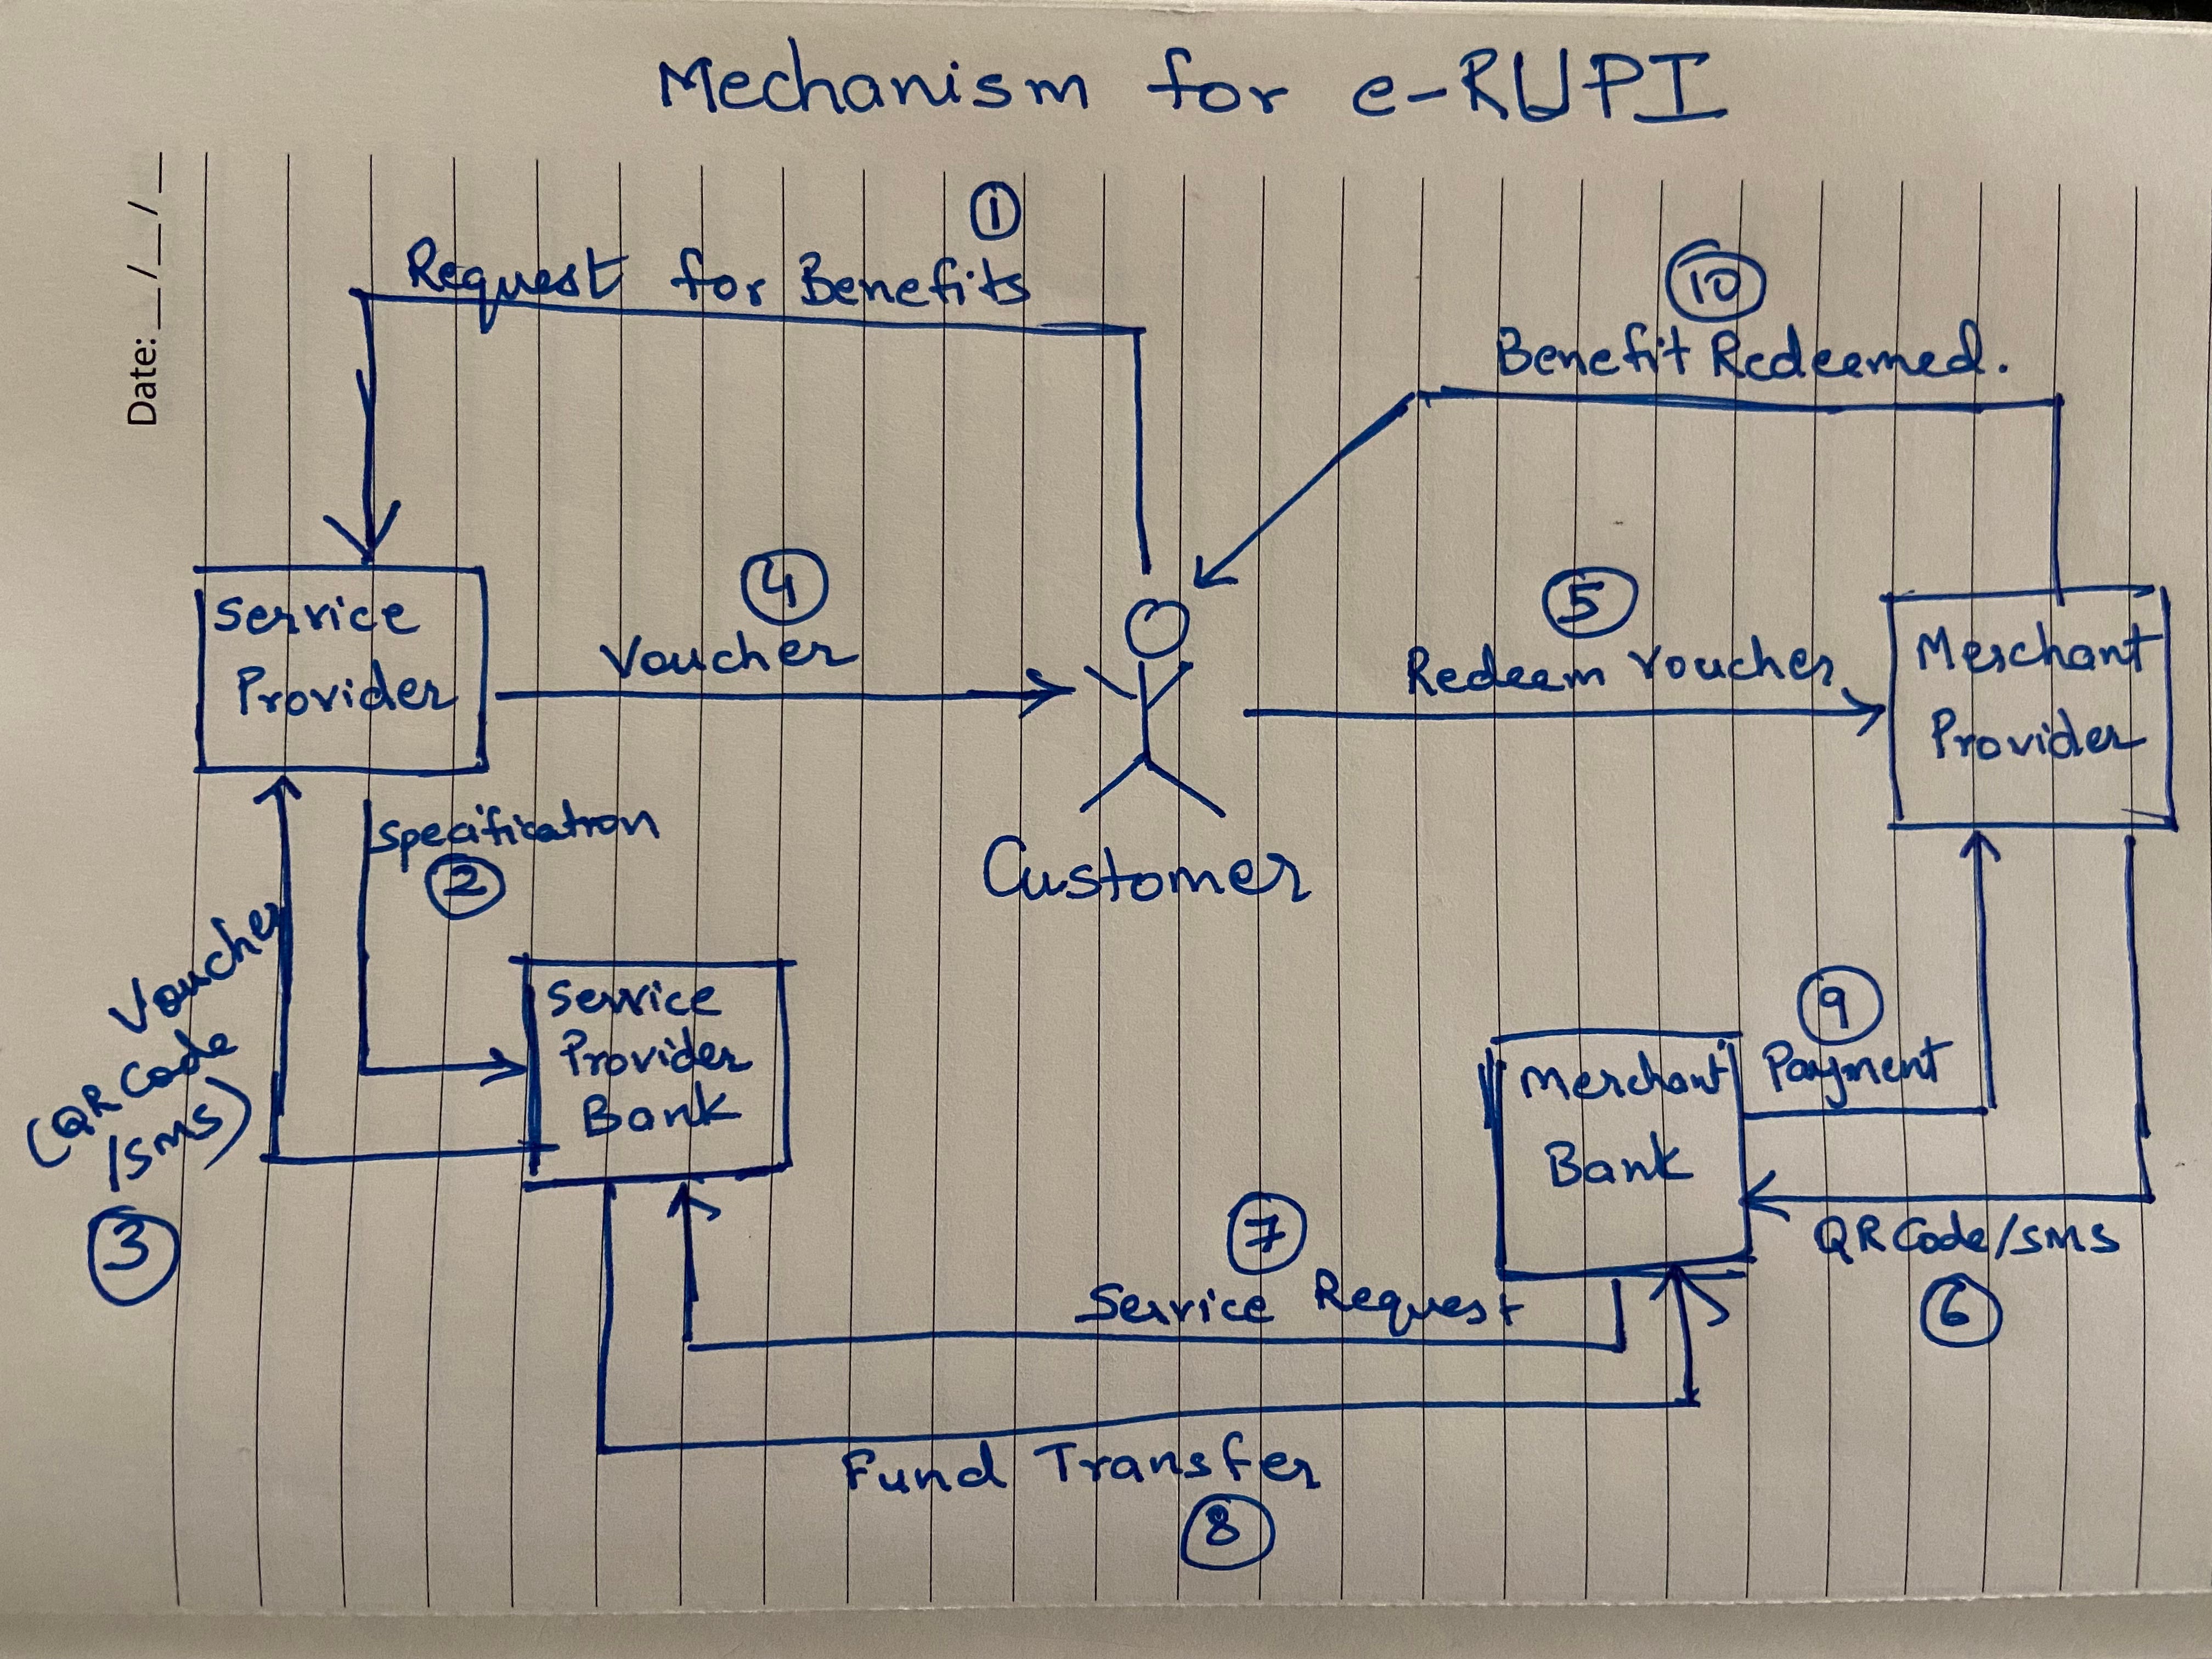 Mechanism for e-RUPI
Date: __/__/__
1
Request for Benefits
10
Benefit Redeemed.
Service
Provider
4
Voucher
5
Redeem Voucher
Merchant
Provider
Customer
Specification
2
Voucher
(QR Code
/SMS)
3
Service
Provider
Bank
Merchant
Bank
9
Payment
QR Code/SMS
6
7
Service Request
Fund Transfer
8